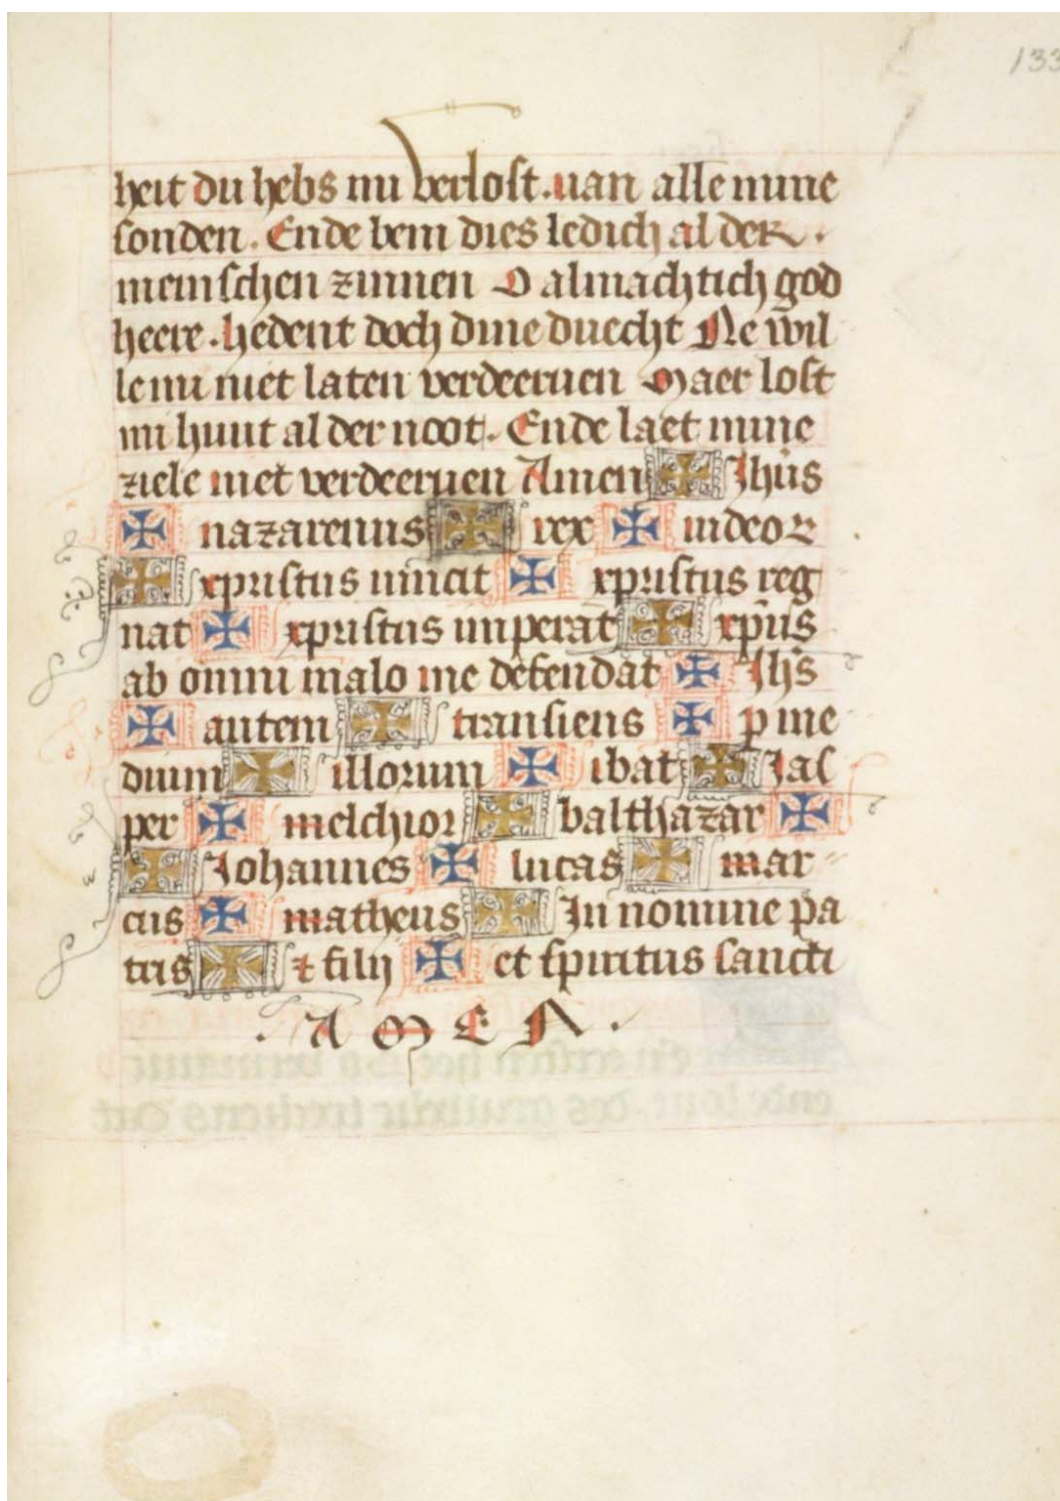 133
heit du hebs mi verlost. uan alle mine
sonden. Ende bem dies ledich al der.
meinschen zinnen O almachtich god
heere. hedent doch dine duecht Ne wil
le mi niet laten verdeeruen Maer lost
mi huut al der noot. Ende laet mine
ziele niet verdeeruen Amen ✠ Jhūs
✠ nazarenus ✠ rex ✠ iudeoꝝ
✠ xpristus uincit ✠ xpristus reg
nat ✠ xpristus imperat ✠ xp̄us
ab omni malo me defendat ✠ Jhs̄
✠ autem ✠ transiens ✠ ꝑ me
dium ✠ illorum ✠ ibat ✠ Jas
per ✠ melchior ✠ balthazar ✠
✠ Johannes ✠ lucas ✠ mar-
cus ✠ matheus ✠ In nomine pa
tris ✠ ⁊ filij ✠ et spiritus sancti
. A M E N .